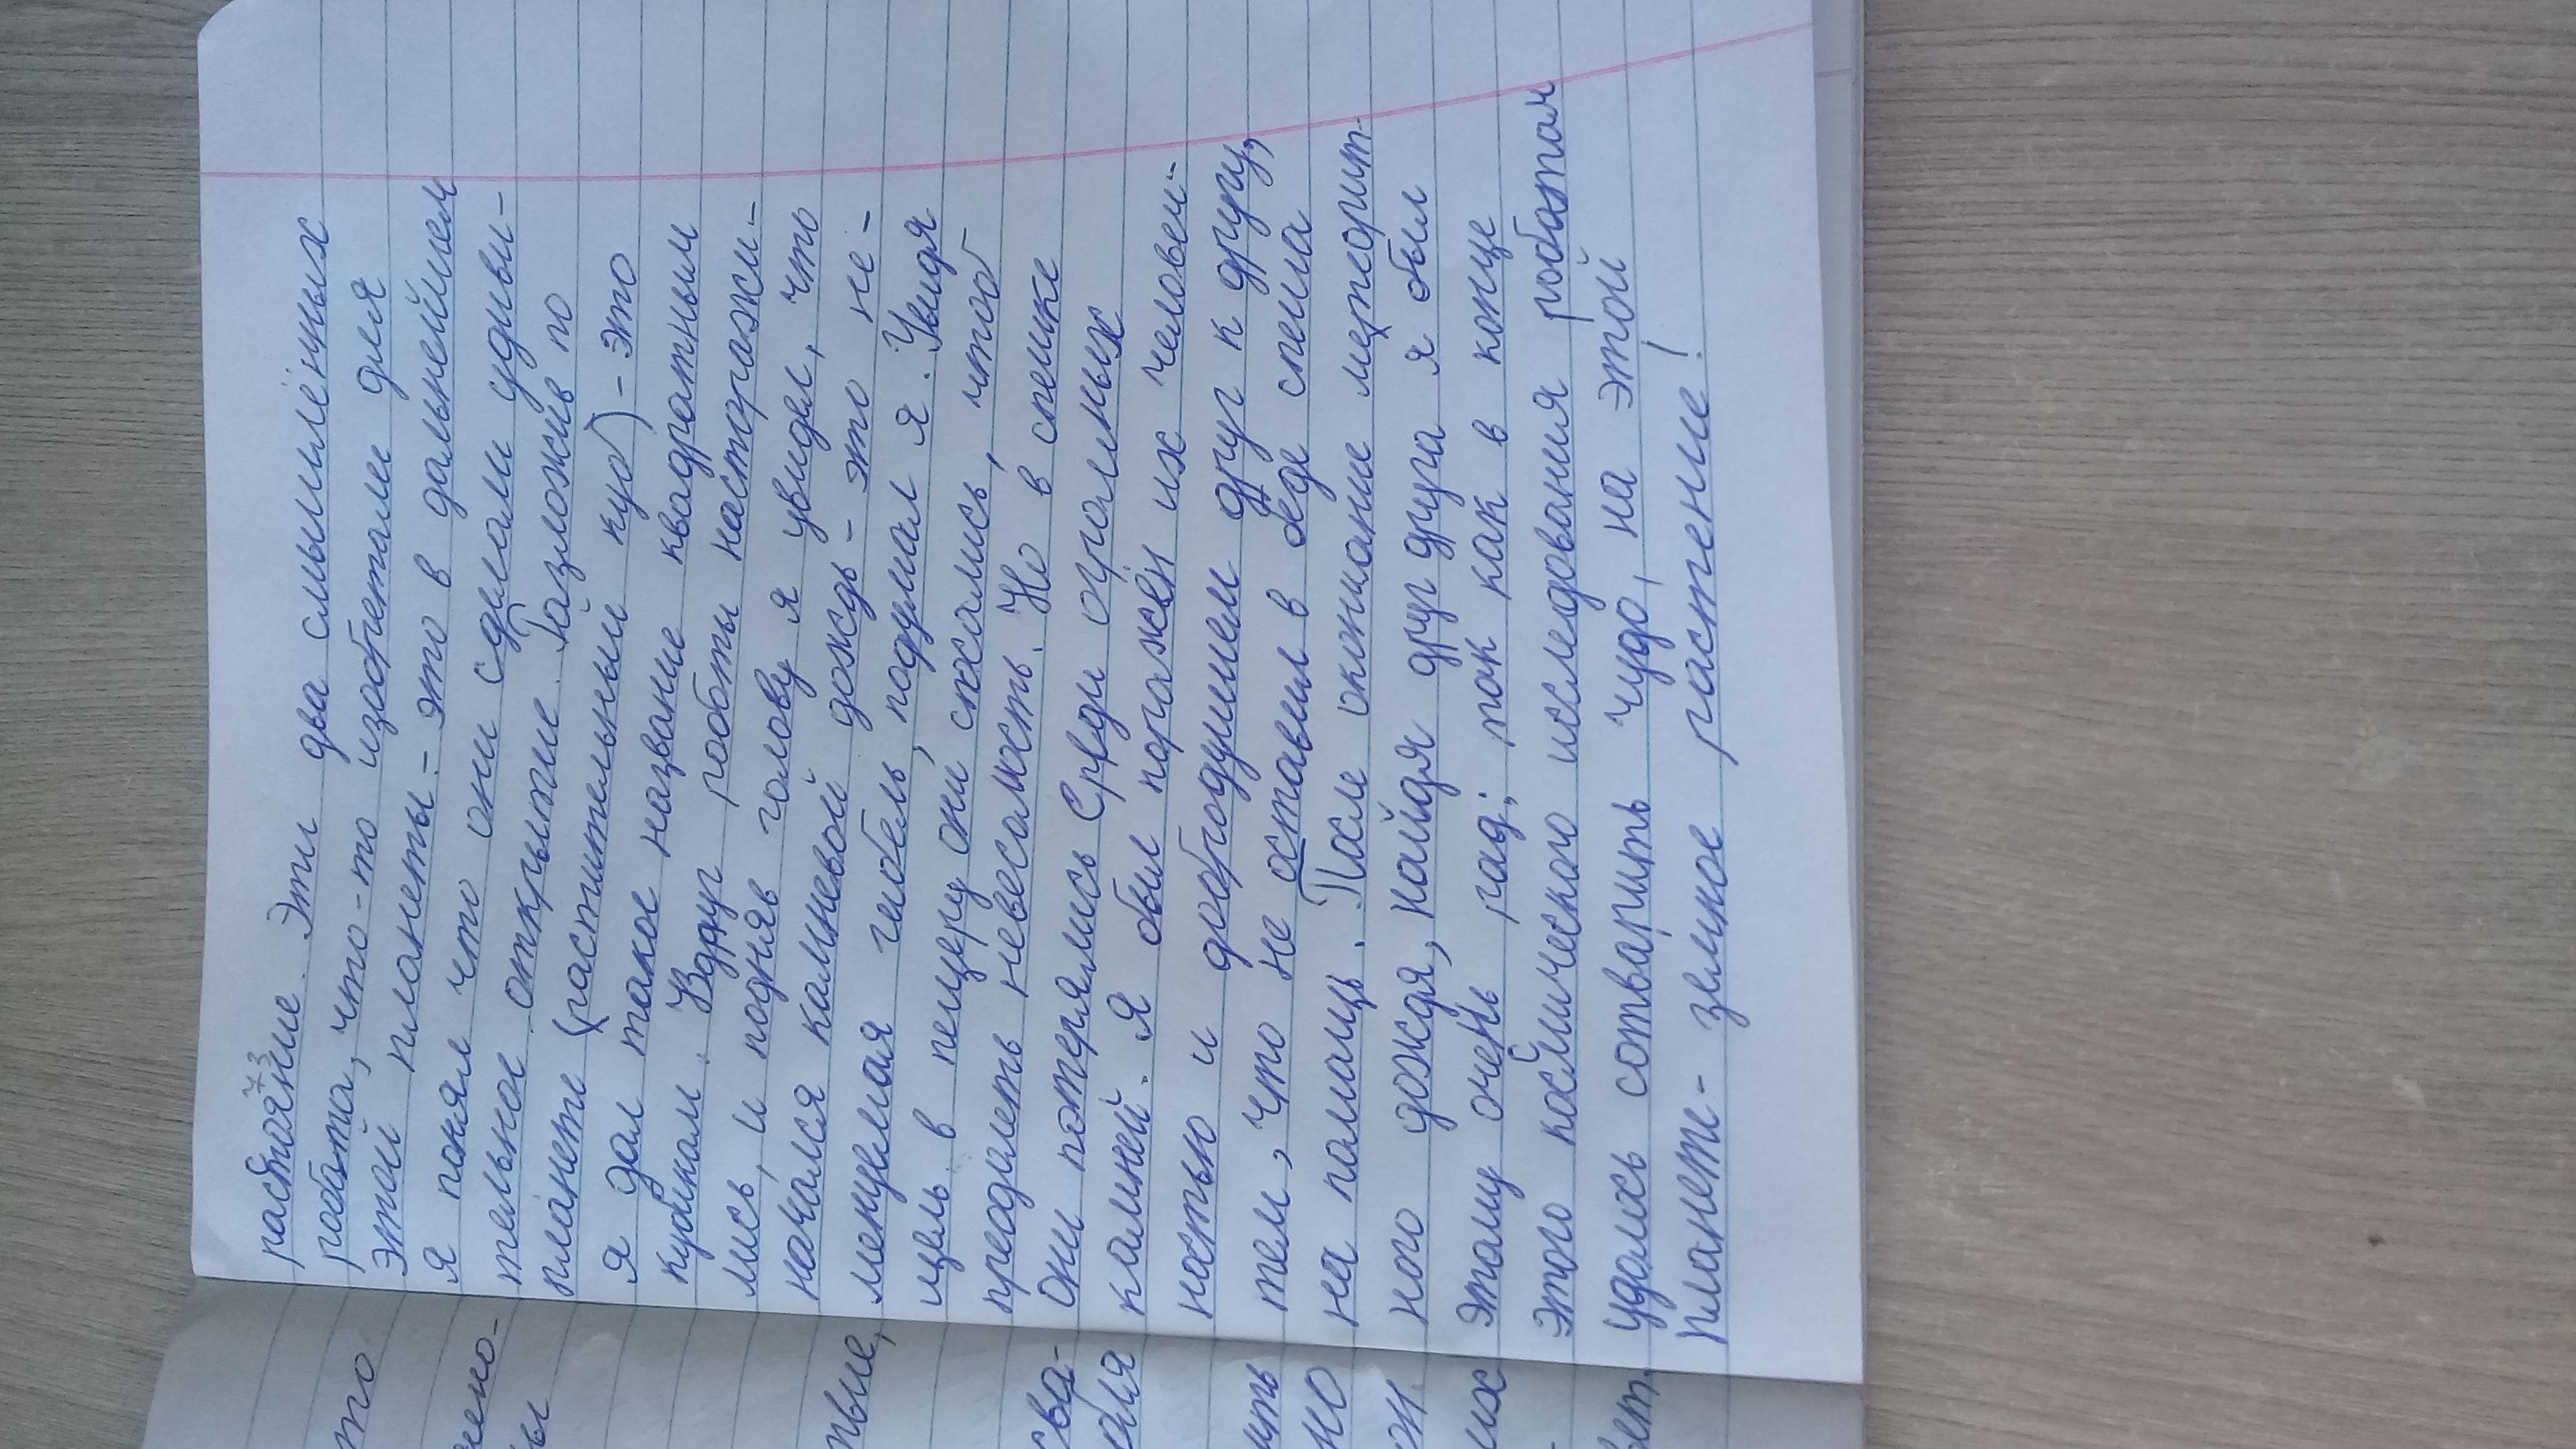 растояние. Эти два смышлённых
робота, что-то изобретали для
этой планеты - это в дальнейшем
я понял что они сделали удиви-
тельное открытие. Разложив по
планете (растительный куб) - это
я дал такое название квадратным
кубикам. Вдруг роботы насторожи-
лись, и подняв голову я увидел, что
начался камневой дождь - это не-
менуемая гибель, подумал я. Увидя
щель в пещеру они сжались, чтоб
преодолеть невесомость. Но в спешке
Они потерялись Среди огромных
камней. Я был поражён их человеч-
ностью и доброродушием друг к другу,
тем, что не оставил в беде спеша
на помощь. После окончание метеорит-
ного дождя, найдя друг друга я был
этому очень рад; так как в конце
этого космического исследования роботам
удалось сотварить чудо, на этой
планете - земное растение!
то
твие,
их